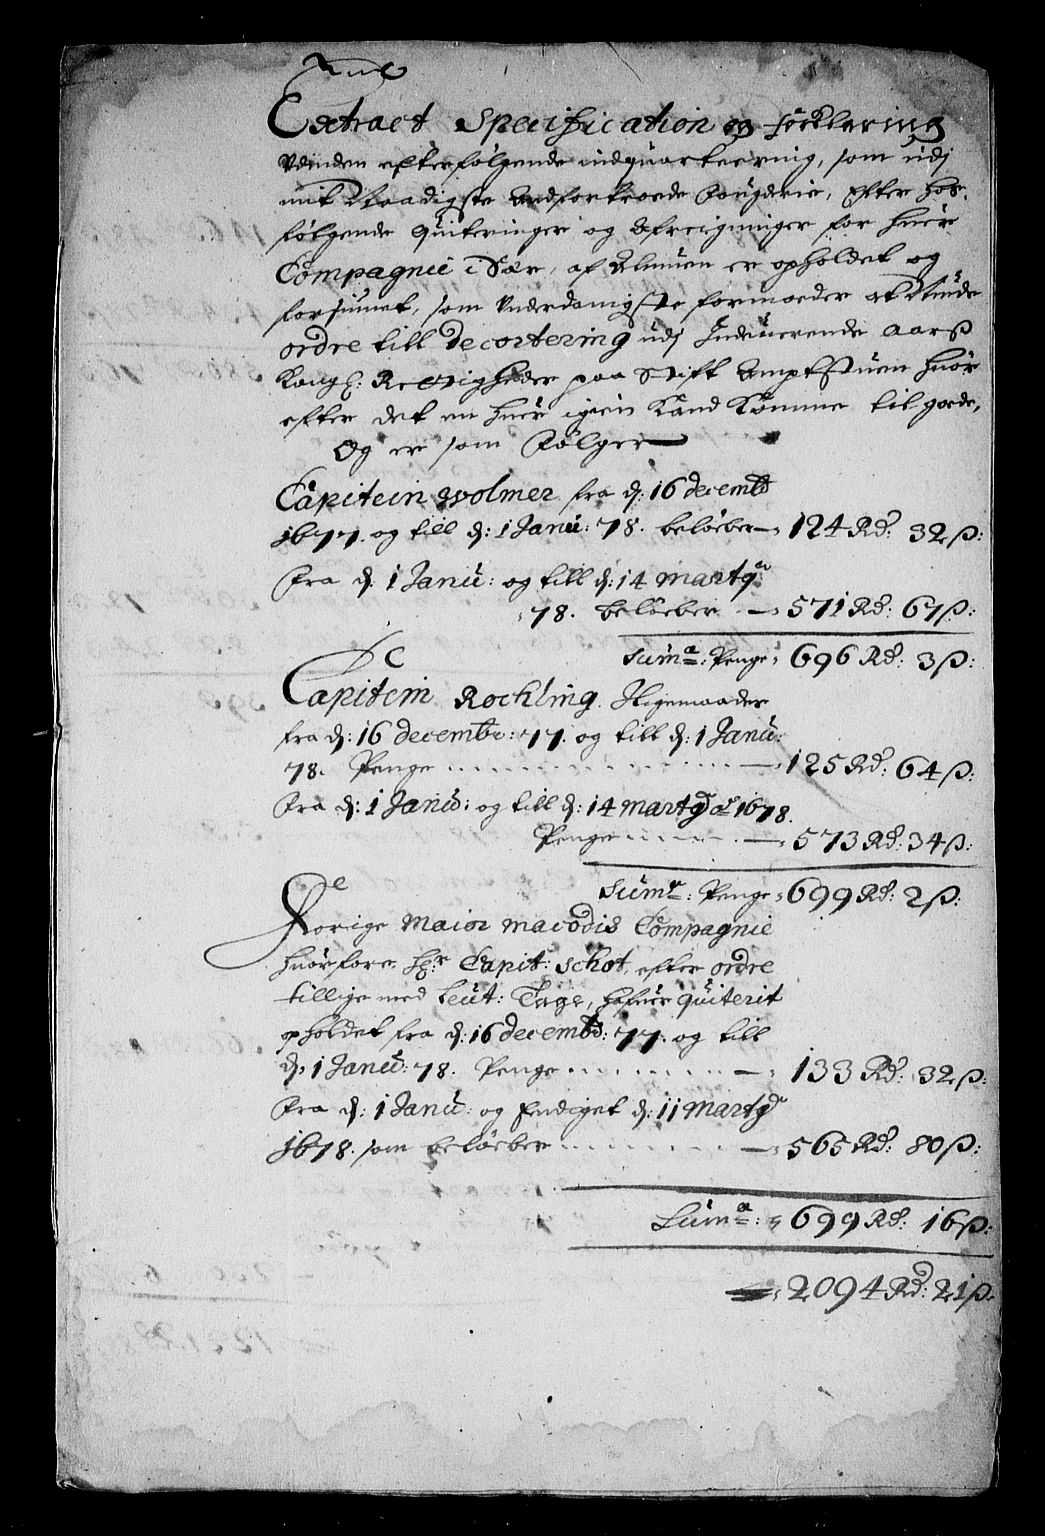 Extract Specification og Forklaring
efterfølgende indquarteering, som udj
mit Naadigste anfortroede Fougderie, efter hos-
følgende quiteringer og afreigninger for huer
Compagnie i Sær, af Almuen er opholdet og
forsiunet, som underdanigste formoeder at Niude
ordre till Decortering udj Indeuerende aarß
Kongl: Rettigheder paa Stift Amptstuen huor
efter det en huer igien Kand Komme til goede,
Og er som Følger
Capitein Wolmer fra d: 16 decembr
1677. og till d: 1 Janu: 78. beløeber 124 Rd: 32 ß:
Fra d: 1 Janu: og till d: 14 Marty
78. beløeber 571 Rd: 67 ß:
Suma: Penge 696 Rd: 3 ß:
Capitein Rochling. Ligemaader
fra d: 16 decembr: 77. og till d: 1 Janu:
78. Penge 125 Rd: 64 ß:
Fra d: 1 Janu: og till d: 14 Marty 1678.
Penge 573 Rd: 34 ß:
Suma: Penge 699 Rd: 2 ß:
Forige Maior Macodis Compagnie
huorfore Hr: Capit: Schot, efter ordre
tillige med Leut: Tage, hafuer quiterit
opholdet fra d: 16 decembr: 77. og till
d: 1 Janu: 78. Penge 133 Rd: 32 ß:
Fra d: 1 Janu: og Endiget d: 11 Marty
1678. som beløeber 565 Rd: 80 ß:
Suma: 699 Rd: 16 ß:
2094 Rd: 21 ß: